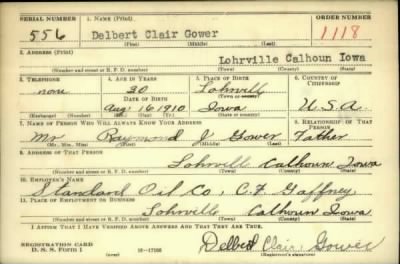 SERIAL NUMBER 1. NAME (Print) ORDER NUMBER
556 Delbert Clair Gower 1118
(First) (Middle) (Last)
2. ADDRESS (Print)
Lohrville Calhoun Iowa
(Number and street or R. F. D. number) (Town) (County) (State)
3. TELEPHONE 4. AGE IN YEARS 5. PLACE OF BIRTH 6. COUNTRY OF CITIZENSHIP
none 30 Lohrville
DATE OF BIRTH (Town or county)
Aug. 16 1910 Iowa U.S.A.
(Exchange) (Number) (Mo.) (Day) (Yr.) (State or country)
7. NAME OF PERSON WHO WILL ALWAYS KNOW YOUR ADDRESS 8. RELATIONSHIP OF THAT PERSON
Mr Raymond J Gower Father
(Mr., Mrs., Miss) (First) (Middle) (Last)
9. ADDRESS OF THAT PERSON
Lohrville Calhoun Iowa
(Number and street or R. F. D. number) (Town) (County) (State)
10. EMPLOYER'S NAME
Standard Oil Co, C.F. Gaffney
11. PLACE OF EMPLOYMENT OR BUSINESS
Lohrville Calhoun Iowa
(Number and street or R. F. D. number) (Town) (County) (State)
I AFFIRM THAT I HAVE VERIFIED ABOVE ANSWERS AND THAT THEY ARE TRUE.
REGISTRATION CARD
D. S. S. FORM 1 (over) 16—17105 Delbert Clair Gower
(Registrant's signature)